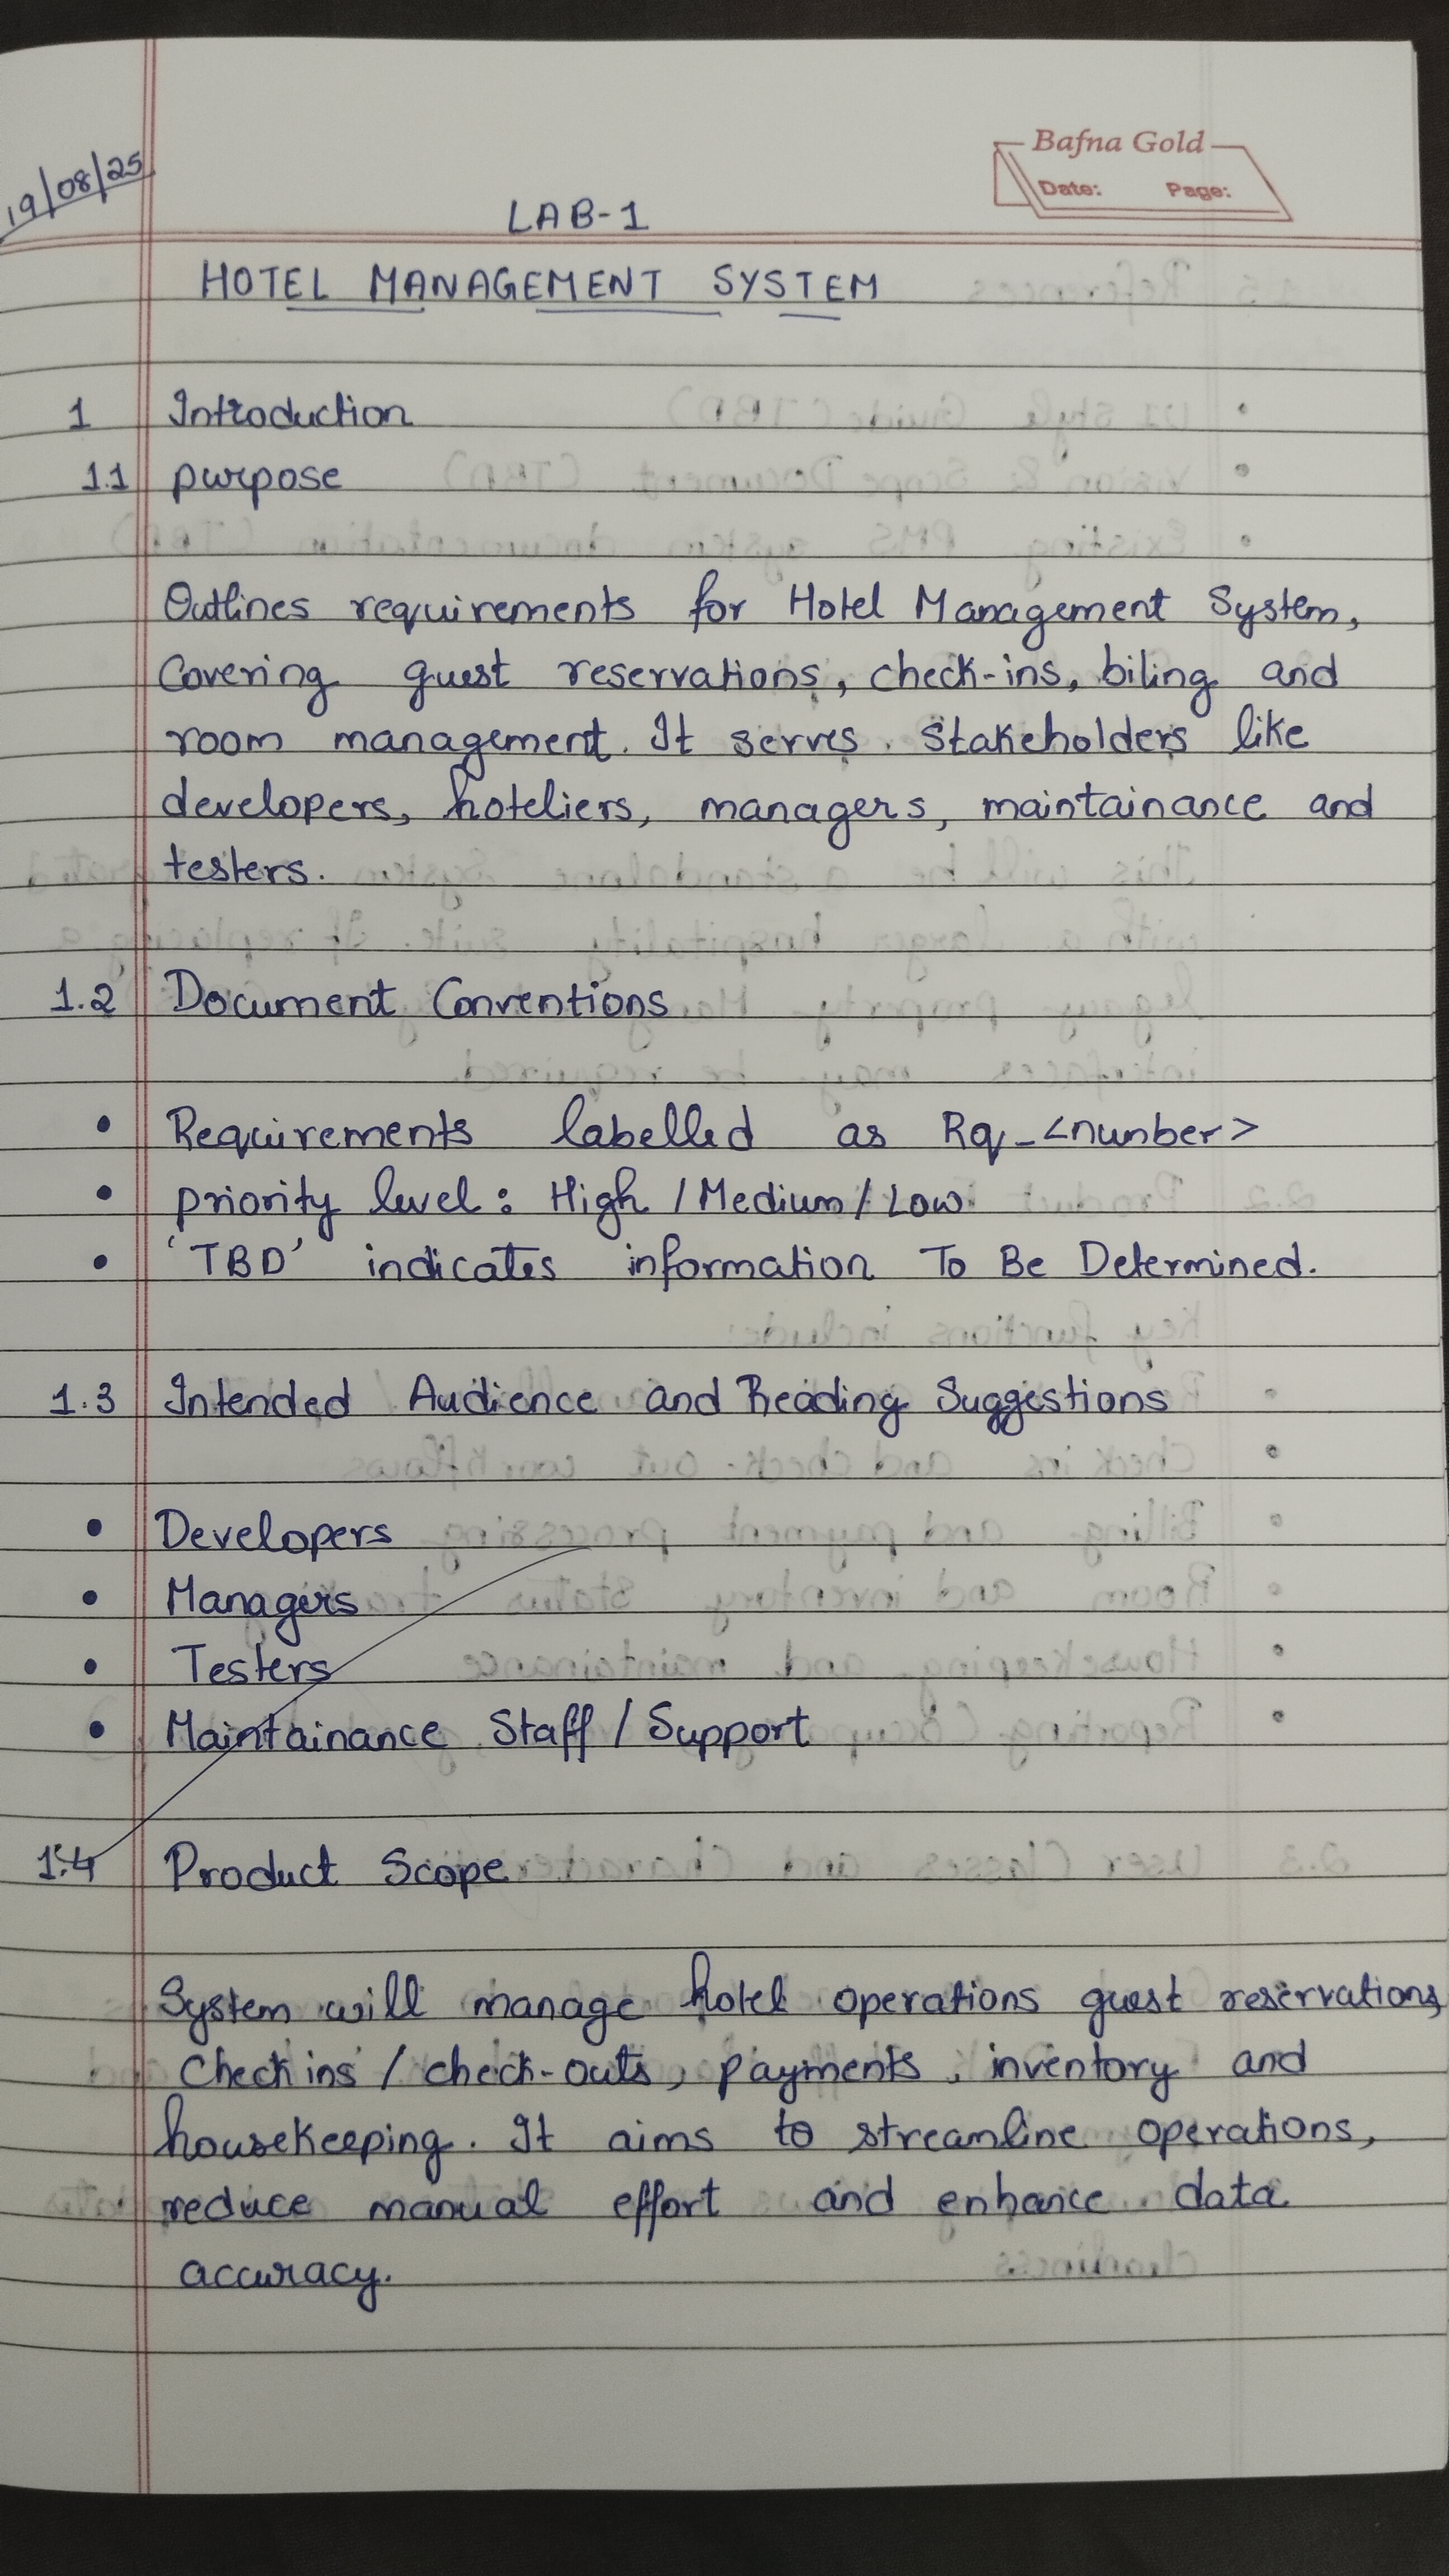 19/08/25
Bafna Gold
Date: Page:
LAB-1
HOTEL MANAGEMENT SYSTEM
1 Introduction
1.1 purpose
Outlines requirements for Hotel Management System,
Covering guest reservations, check-ins, biling and
room management. It serves stakeholders like
developers, hoteliers, managers, maintainance and
testers.
1.2 Document Conventions
• Requirements labelled as Rq_<number>
• priority level: High / Medium / Low
• 'TBD' indicates information To Be Determined.
1.3 Intended Audience and Reading Suggestions
• Developers
• Managers
• Testers
• Maintainance Staff / Support
1.4 Product Scope
System will manage hotel operations guest reservations,
Check ins / check-outs, payments, inventory and
housekeeping. It aims to streamline operations,
reduce manual effort and enhance data
accuracy.